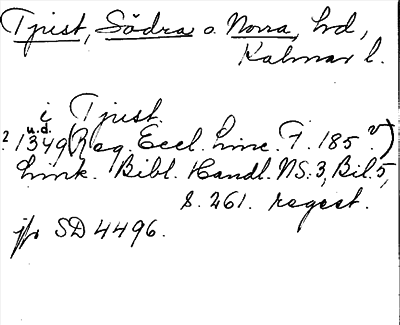 Tjust, Södra o. Norra, hd,
Kalmar l.
i Tjust.
u.d.
? 1349 (Reg. Eccl. Linc. F. 185 v)
Link. Bibl. Handl. NS:3, Bil. 5,
S. 261. regest.
jfr SD 4496.